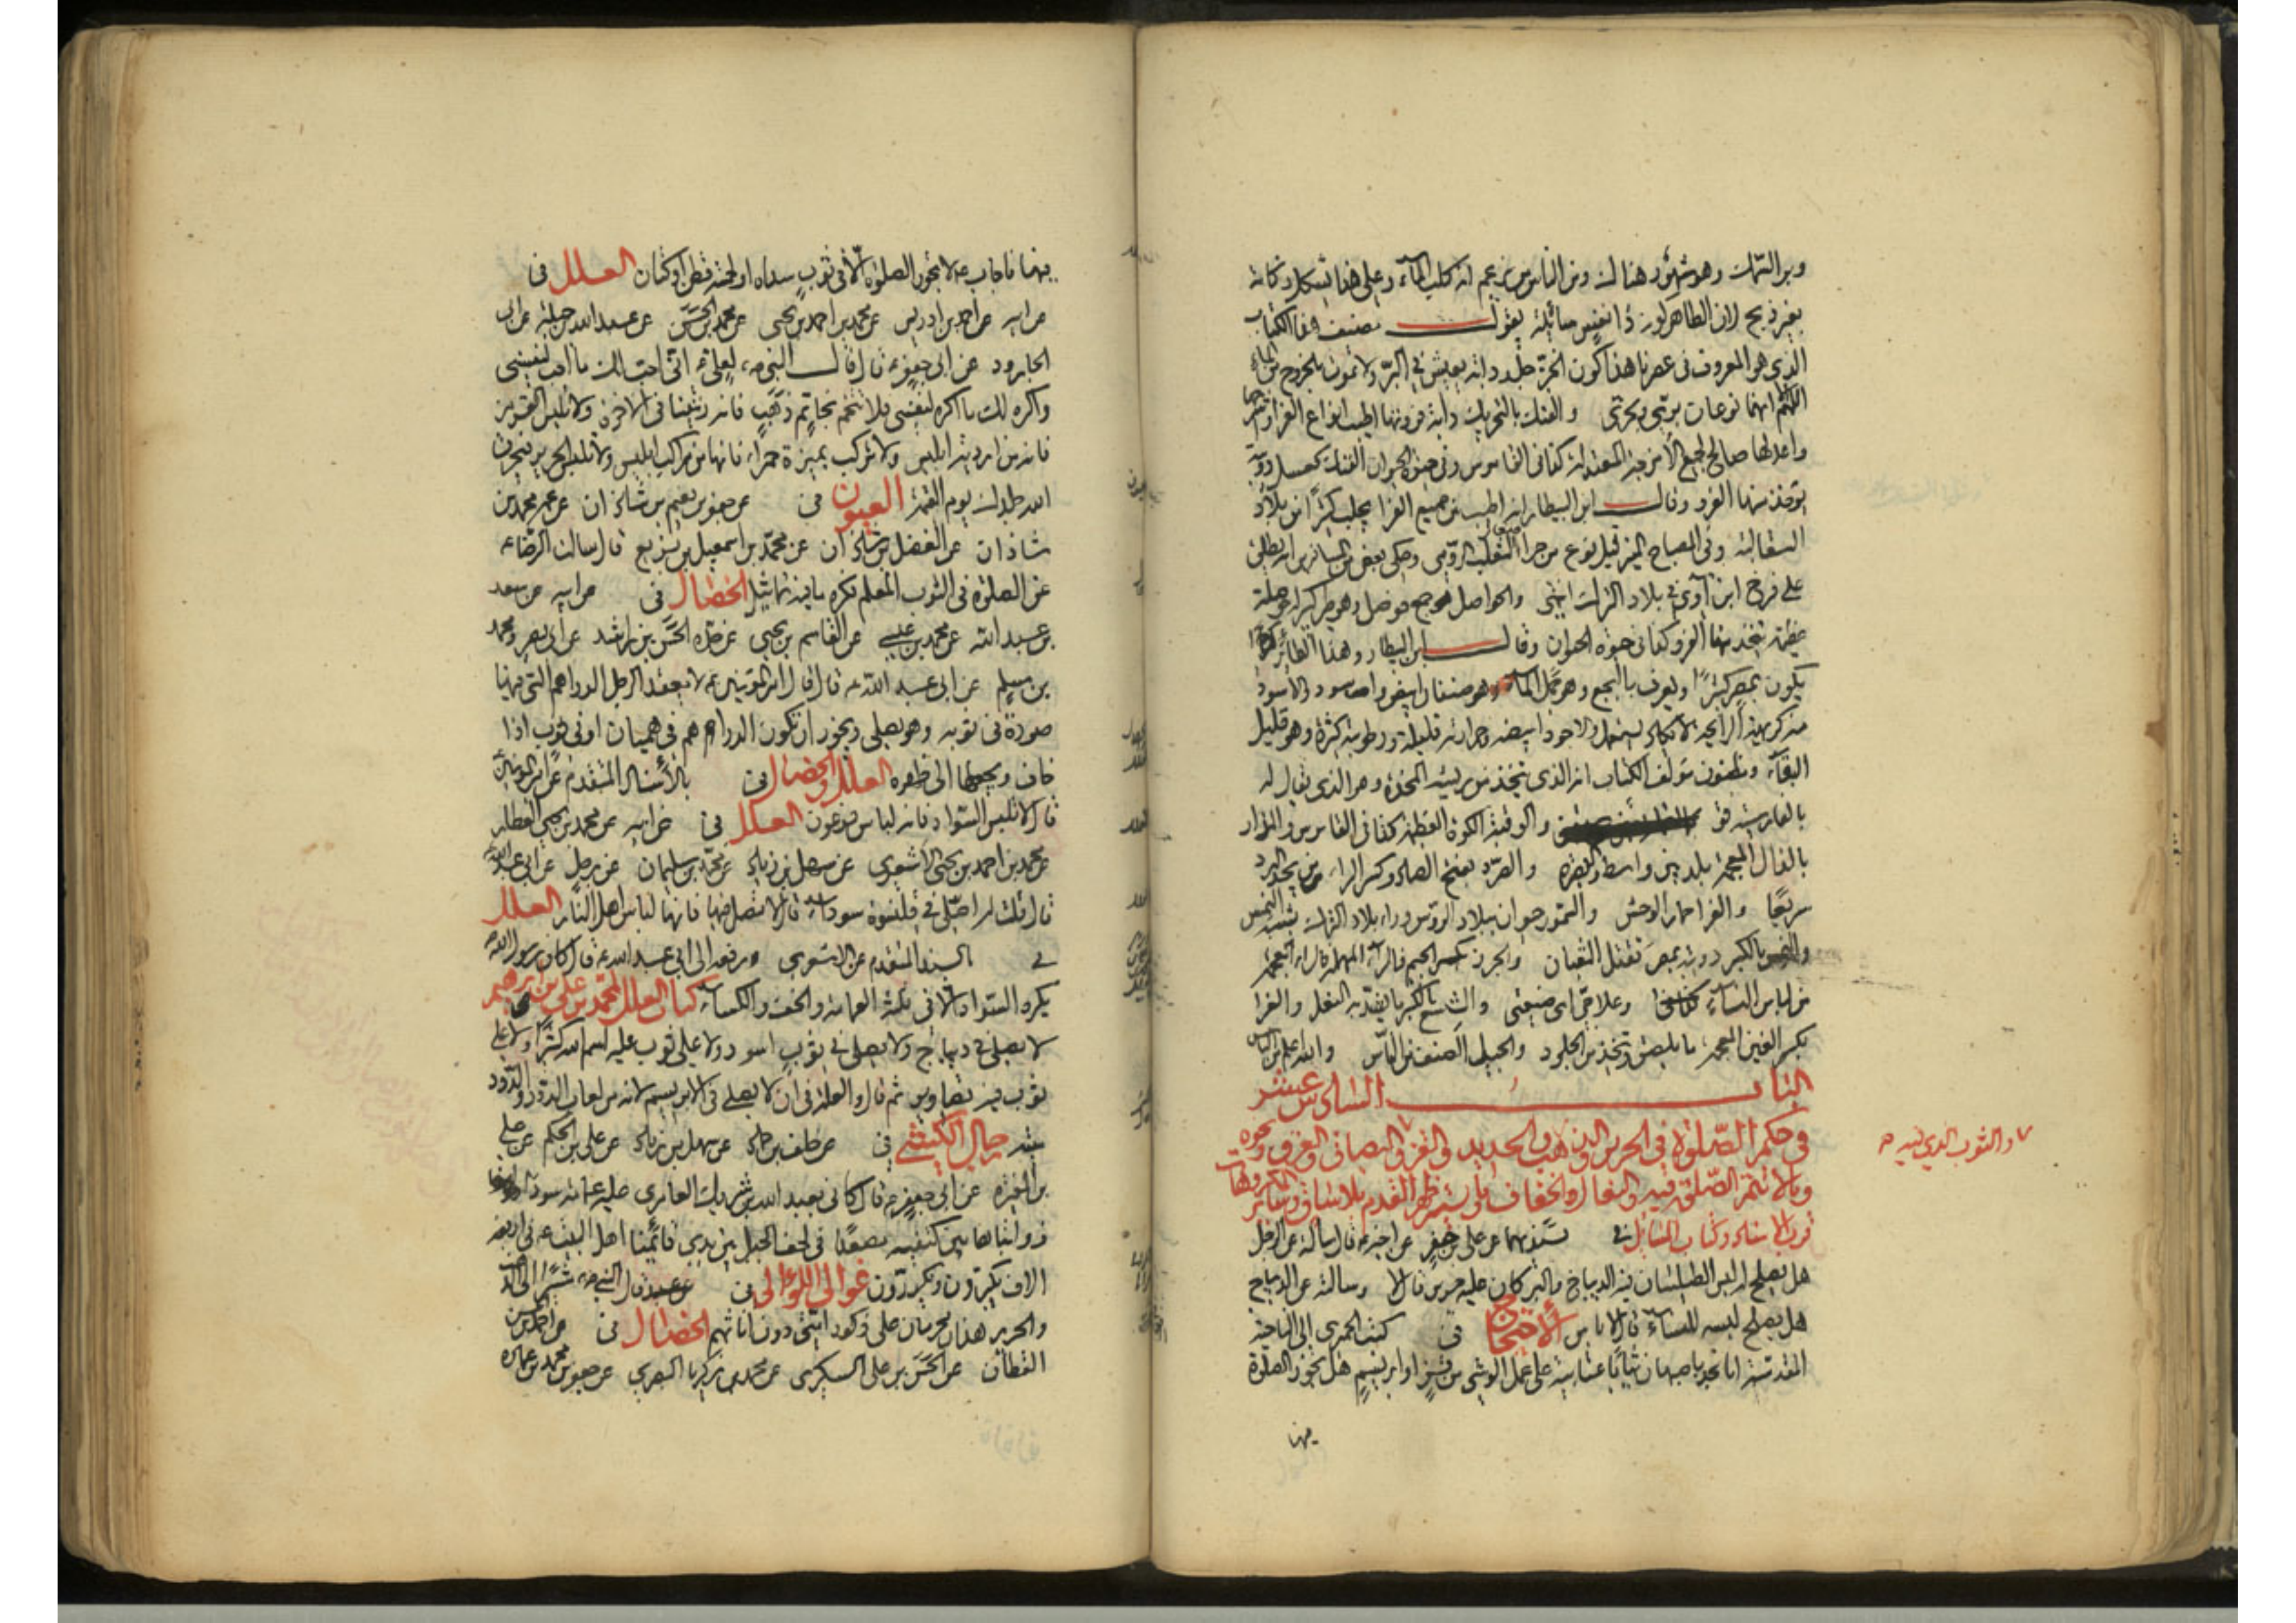 وبر السمك وهو مشهور هنالك ومن الناس من زعم انه كلب الماء وعلى هذا يشكل ذكاته
بغير ذبح لان الظاهر كونه ذا نفس سائلة يقول مصنف هذا الكتاب
الذي هو المعروف في عصرنا هذا كون الخز جلد دابة يعيش في البر ولا تموت بالخروج من الماء
اللهم انهما نوعان بري وبحري والفنك بالتحريك دابة فروتها اطيب انواع الفراء واشرفها
واعدلها صالح لجميع الامزجة المعتدلة كذا في القاموس وفي حيوة الحيوان الفنك كعسل دويبة
يؤخذ منها الفرو وقال ابن البيطار انه اطيب من جميع الفراء يجلب كثيرا من بلاد
السقالبة وفي المصباح المنير قيل نوع من جراء الثعلب الرومي وحكى بعض المسافرين انه يطلق
على فرخ ابن آوى في بلاد الترك انتهى والحواصل جمع حوصل وهو طير كبير له حوصلة
عظيمة يتخذ منها الفرو كذا في حيوة الحيوان وقال ابن البيطار وهذا الطائر
يكون بمصر كثيرا ويعرف بالبجع وهو جمل الماء وهو صنفان ابيض واسود والاسود
منه كريه الرائحة لا يكاد يستعمل والاجود ابيضه وحرارته قليلة ورطوبته كثيرة وهو قليل
البقاء ومظنون مؤلف الكتاب انه الذي يتخذ من ريشه المخدة وهو الذي يقال له
بالفارسية قو والوفية الكوة العظيمة كذا في القاموس والمذار
بالذال المعجمة بلد بين واسط والبصرة والصرد بفتح الصاد وكسر الراء من يجد البرد
سريعا والفراء حمار الوحش والسمور حيوان ببلاد الروس وراء بلاد الترك يشبه النمس
والنمس بالكسر دويبة بمصر تقتل الثعبان والجرز بكسر الجيم فالراء المهملة فالزاء المعجمة
من لباس النساء وعلاقي اي ضيعتي والشسع بالكسر ما يشد به النعل والفراء
بكسر الغين المعجمة ما يلصق ويتخذ من الجلود والجيل الصنف من الناس والله اعلم
الباب السادس عشر
في حكم الصلوة في الحرير والذهب والحديد والقز والتصاوير ونحوه
وما لا تتم الصلوة فيه والنعال والخفاف وما يستر ظهر القدم بلا ساق وسائر المكروهات
قرب الاسناد وكتاب المسائل في بسندهما عن علي بن جعفر عن اخيه ع قال سالته عن الرجل
هل يصلح له لبس الطيلسان فيه الديباج والبركان عليه حرير قال لا وسالته عن الديباج
هل يصلح لبسه للنساء قال لا باس الاحتجاج في كتب الحميري الى الناحية
المقدسة انا نجد باصبهان ثيابا عتابية على عمل الوشي من قز او ابريسم هل يجوز الصلوة
فيها
والثوب الذي فيه
فيها فاجاب ع لا تجوز الصلوة الا في ثوب سداه او لحمته قطن او كتان العلل في
عن ابيه عن احمد بن ادريس عن محمد بن احمد بن يحيى عن محمد بن الحسين عن عبد الله بن جبلة عن ابي
الجارود عن ابي جعفر ع قال قال النبي ص لعلي ع اني احب لك ما احب لنفسي
واكره لك ما اكره لنفسي فلا تتختم بخاتم ذهب فانه زينتنا في الاخرة ولا تلبس القرمز
فانه من اردية ابليس ولا تركب بميثرة حمراء فانها من مراكب ابليس ولا تلبس الحرير فيحرق
الله جلدك يوم القيمة العيون في عن جعفر بن نعيم بن شاذان عن عمه محمد بن
شاذان عن الفضل بن شاذان عن محمد بن اسمعيل بن بزيع قال سالت الرضا ع
عن الصلوة في الثوب المعلم فكره ما فيه تماثيل الخصال في عن ابيه عن سعد
بن عبد الله عن محمد بن عيسى عن القاسم بن يحيى عن جده الحسن بن راشد عن ابي بصير ومحمد
بن مسلم عن ابي عبد الله ع قال قال امير المؤمنين ع لا يعقد الرجل الدراهم التي فيها
صورة في ثوبه وهو يصلي ويجوز ان تكون الدراهم في هميان او في ثوب اذا
خاف ويجعلها الى ظهره العلل والخصال في بالاسناد المتقدم عن امير المؤمنين
قال لا تلبس السواد فانه لباس فرعون العلل في عن ابيه عن محمد بن يحيى العطار
عن محمد بن احمد بن يحيى الاشعري عن سهل بن زياد عن محمد بن سليمان عن رجل عن ابي عبد الله
قال قلت له اصلي في قلنسوة سوداء قال لا تصل فيها فانها لباس اهل النار العلل
في بالسند المتقدم عن الاشعري ورفعه الى ابي عبد الله ع قال كان رسول الله ص
يكره السواد الا في ثلثة العمامة والخف والكساء كتاب العلل لمحمد بن علي بن ابرهيم
لا يصلى في ديباج ولا يصلى في ثوب اسود ولا على ثوب عليه اسم الله كثيرا ولا على
ثوب فيه تصاوير ثم قال والعلة في ان لا يصلى في الابريسم لانه من لعاب الدود والدود
ميتة رجال الكشي في عن خلف بن حماد عن سهل بن زياد عن علي بن الحكم عن علي
بن المغيرة عن ابي جعفر ع قال كاني بعبد الله بن شريك العامري عليه عمامة سوداء
ذوابتاها بين كتفيه مصعدا في لحف الجبل بين يدي قائمنا اهل البيت ع في اربعة
الاف يكبرون ويكررون غوالي اللؤالي في قال النبي ص مشيرا الى الذهب
والحرير هذان محرمان على ذكور امتي دون اناثهم الخصال في عن احمد بن الحسن
القطان عن الحسن بن علي السكري عن محمد بن زكريا البصري عن جعفر بن محمد بن عمارة